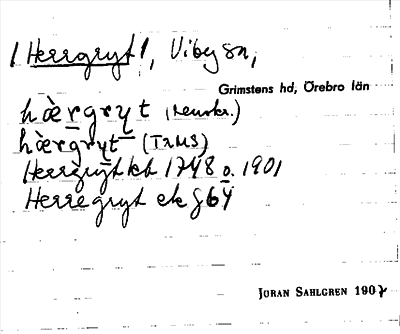 1 Herrgryt 1, Viby sn,
Grimstens hd, Örebro län
hàrgryt (renskr.)
hàrgryt (T2MS)
Herrgryt kb 1748 o. 1901
Herregryt ek g64
JÖRAN SAHLGREN 1907